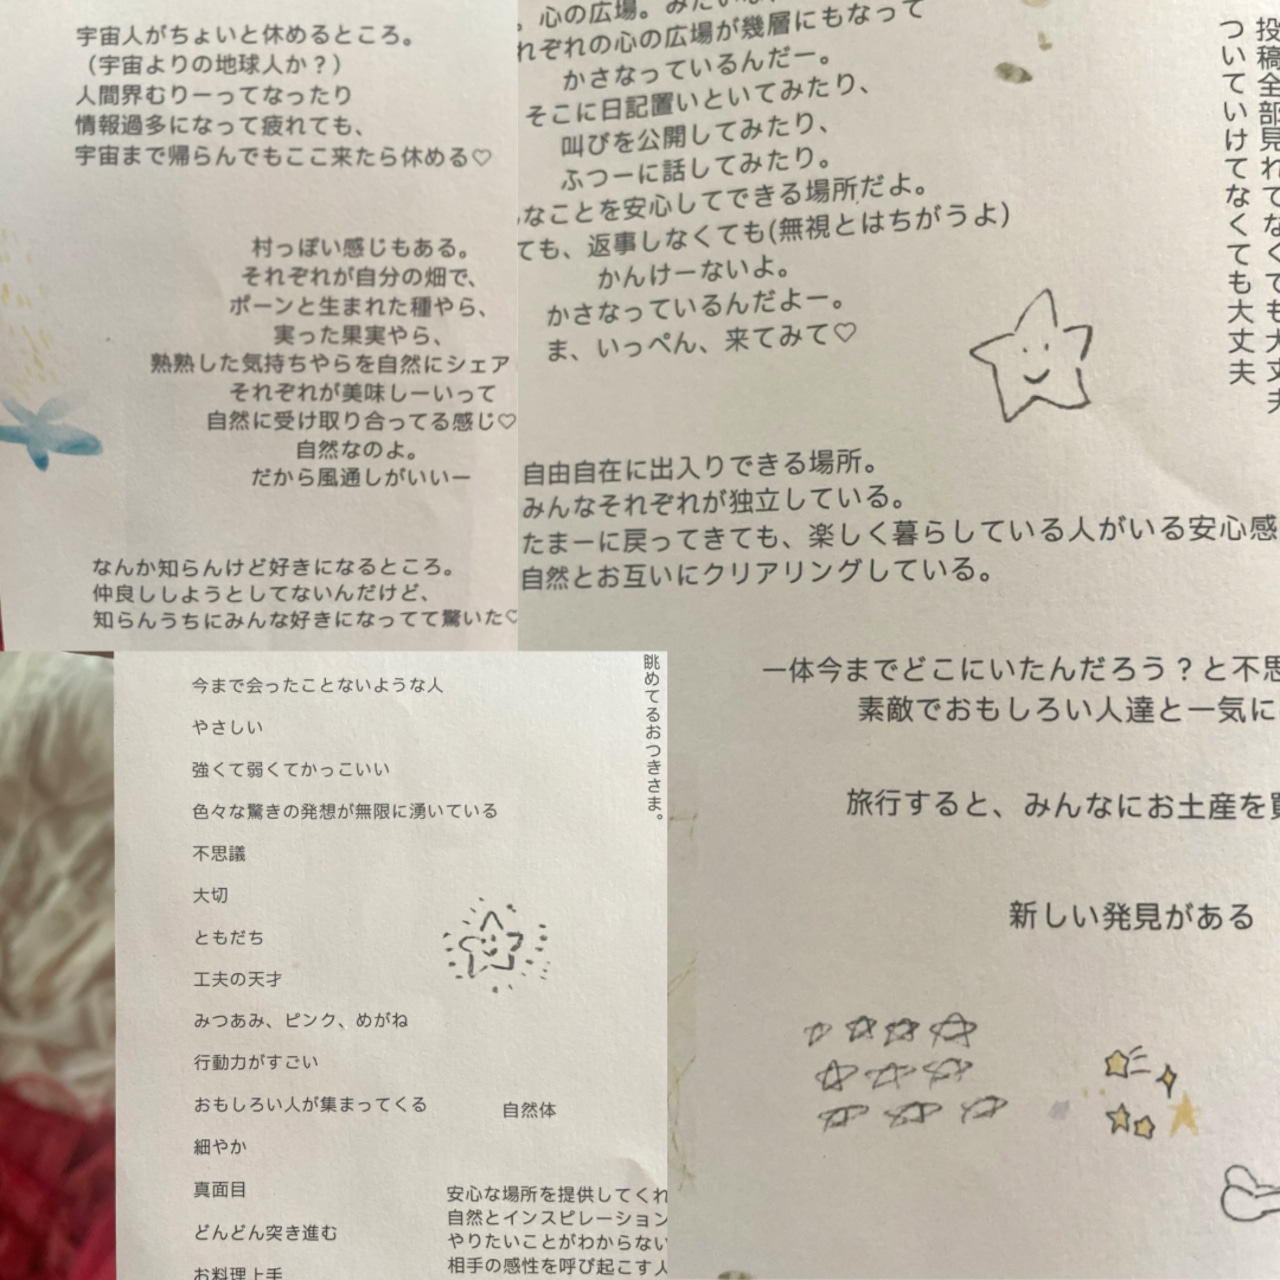 宇宙人がちょいと休めるところ。
（宇宙よりの地球人か？）
人間界むりーってなったり
情報過多になって疲れても、
宇宙まで帰らんでもここ来たら休める♡
村っぽい感じもある。
それぞれが自分の畑で、
ポーンと生まれた種やら、
実った果実やら、
熟熟した気持ちやらを自然にシェア
それぞれが美味しーいって
自然に受け取り合ってる感じ♡
自然なのよ。
だから風通しがいいー
なんか知らんけど好きになるところ。
仲良ししようとしてないんだけど、
知らんうちにみんな好きになってて驚いた♡
。心の広場。みたいな
れぞれの心の広場が幾層にもなって
かさなっているんだー。
そこに日記置いといてみたり、
叫びを公開してみたり、
ふつーに話してみたり。
なことを安心してできる場所だよ。
ても、返事しなくても(無視とはちがうよ)
かんけーないよ。
かさなっているんだよー。
ま、いっぺん、来てみて♡
投稿全部見れてなくても大丈夫
ついていけてなくても大丈夫
自由自在に出入りできる場所。
みんなそれぞれが独立している。
たまーに戻ってきても、楽しく暮らしている人がいる安心感
自然とお互いにクリアリングしている。
一体今までどこにいたんだろう？と不思
素敵でおもしろい人達と一気に
旅行すると、みんなにお土産を買
新しい発見がある
眺めてるおつきさま。
今まで会ったことないような人
やさしい
強くて弱くてかっこいい
色々な驚きの発想が無限に湧いている
不思議
大切
ともだち
工夫の天才
みつあみ、ピンク、めがね
行動力がすごい
おもしろい人が集まってくる
細やか
真面目
どんどん突き進む
お料理上手
自然体
安心な場所を提供してくれ
自然とインスピレーション
やりたいことがわからない
相手の感性を呼び起こす人